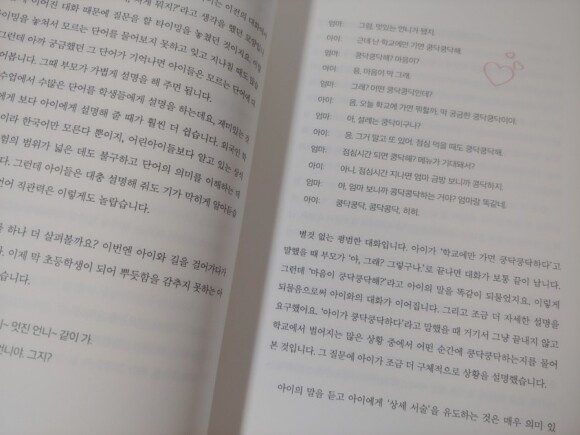 이어진 대화 때문에 질문을 할 타이밍을 놓쳤던 것이지요.
타이밍을 놓쳐서 모르는 단어를 물어보지 못하고 잊고 지나칠 때도 많
그런데 아까 궁금했던 그 단어가 기억나면 아이들은 모르는 단어에
어봅니다. 그때 부모가 가볍게 설명을 해 주면 됩니다.
수업에서 수많은 단어를 학생들에게 설명을 하는데요, 재미있는 것
에게 보다 아이에게 설명해 줄 때가 훨씬 더 쉽습니다. 외국인
이라 한국어만 모른다 뿐이지, 어린아이들보다 알고 있는
험의 범위가 넓은 데도 불구하고 단어의 의미를 이해하는
다. 그런데 아이들은 대충 설명해 줘도 기가 막히게 알아듣
언어 직관력은 이렇게도 놀랍습니다.
하나 더 살펴볼까요? 이번엔 아이와 길을 걸어가다가
다. 이제 막 초등학생이 되어 뿌듯함을 감추지 못하는
습니다.
~ 멋진 언니~ 같이 가.
언니야. 그지?
엄마: 그럼, 멋있는 언니가 됐지.
아이: 근데 난 학교에만 가면 쿵닥쿵닥해.
엄마: 쿵닥쿵닥해? 마음이?
아이: 응, 마음이 막 그래.
엄마: 그래? 어떤 쿵닥쿵닥인데?
아이: 음, 오늘 학교에 가면 뭐할까, 막 궁금한 쿵닥쿵닥이야.
엄마: 아, 설레는 쿵닥이구나?
아이: 응, 그거 말고 또 있어. 점심 먹을 때도 쿵닥쿵닥해.
엄마: 점심시간 되면 쿵닥해? 메뉴가 기대돼서?
아이: 아니, 점심시간 지나면 엄마 금방 보니까 쿵닥하지.
엄마: 아, 엄마 보니까 쿵닥쿵닥하는 거야? 엄마랑 똑같네.
아이: 쿵닥쿵닥, 쿵닥쿵닥, 히히.
별것 없는 평범한 대화입니다. 아이가 '학교에만 가면 쿵닥쿵닥하다'고
말했을 때 부모가 '아, 그래? 그렇구나.'로 끝나면 대화가 보통 끝이 납니다.
그런데 '마음이 쿵닥쿵닥해?'라고 아이의 말을 똑같이 되물었지요. 이렇게
되물음으로써 아이와의 대화가 이어집니다. 그리고 조금 더 자세한 설명을
요구했어요. '아이가 쿵닥쿵닥하다'라고 말했을 때 거기서 그냥 끝내지 않고
학교에서 벌어지는 많은 상황 중에서 어떤 순간에 쿵닥쿵닥하는지를 물어
본 것입니다. 그 질문에 아이가 조금 더 구체적으로 상황을 설명했습니다.
아이의 말을 듣고 아이에게 '상세 서술'을 유도하는 것은 매우 의미 있